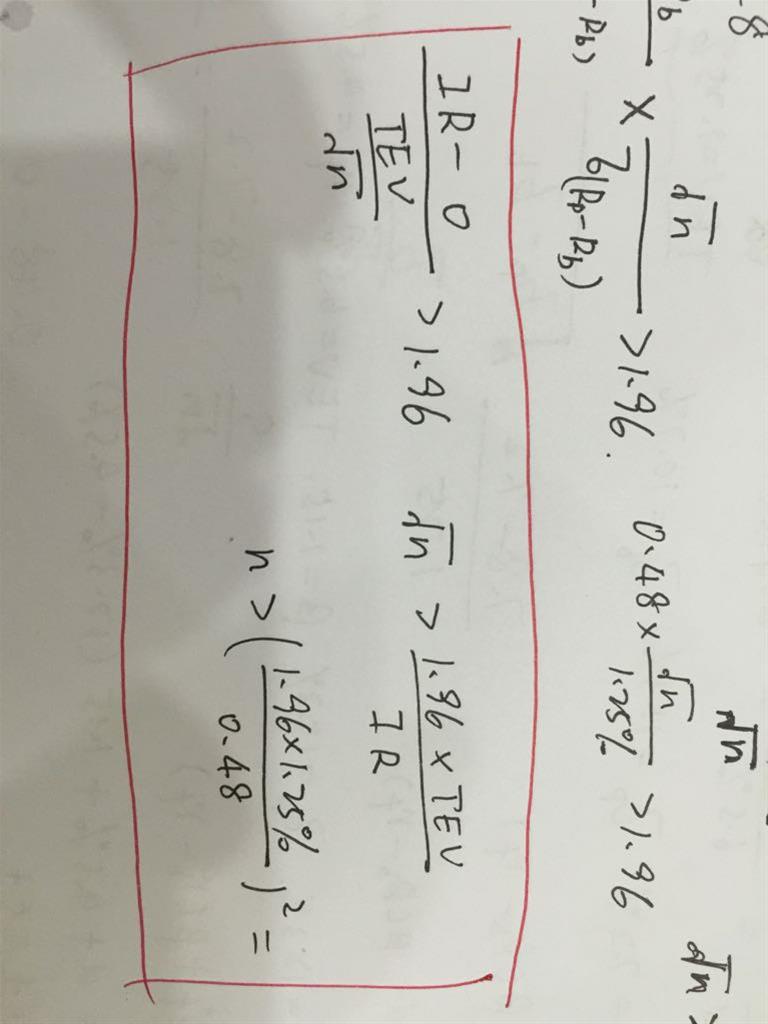 -8
√n
√n >
-Rb) × √n / σ(Rp-Rb) > 1.96. 0.48 × √n / 1.25% > 1.96
IR - 0 / (TEV / √n) > 1.96 √n > 1.96 × TEV / IR
n > (1.96×1.25% / 0.48)² =